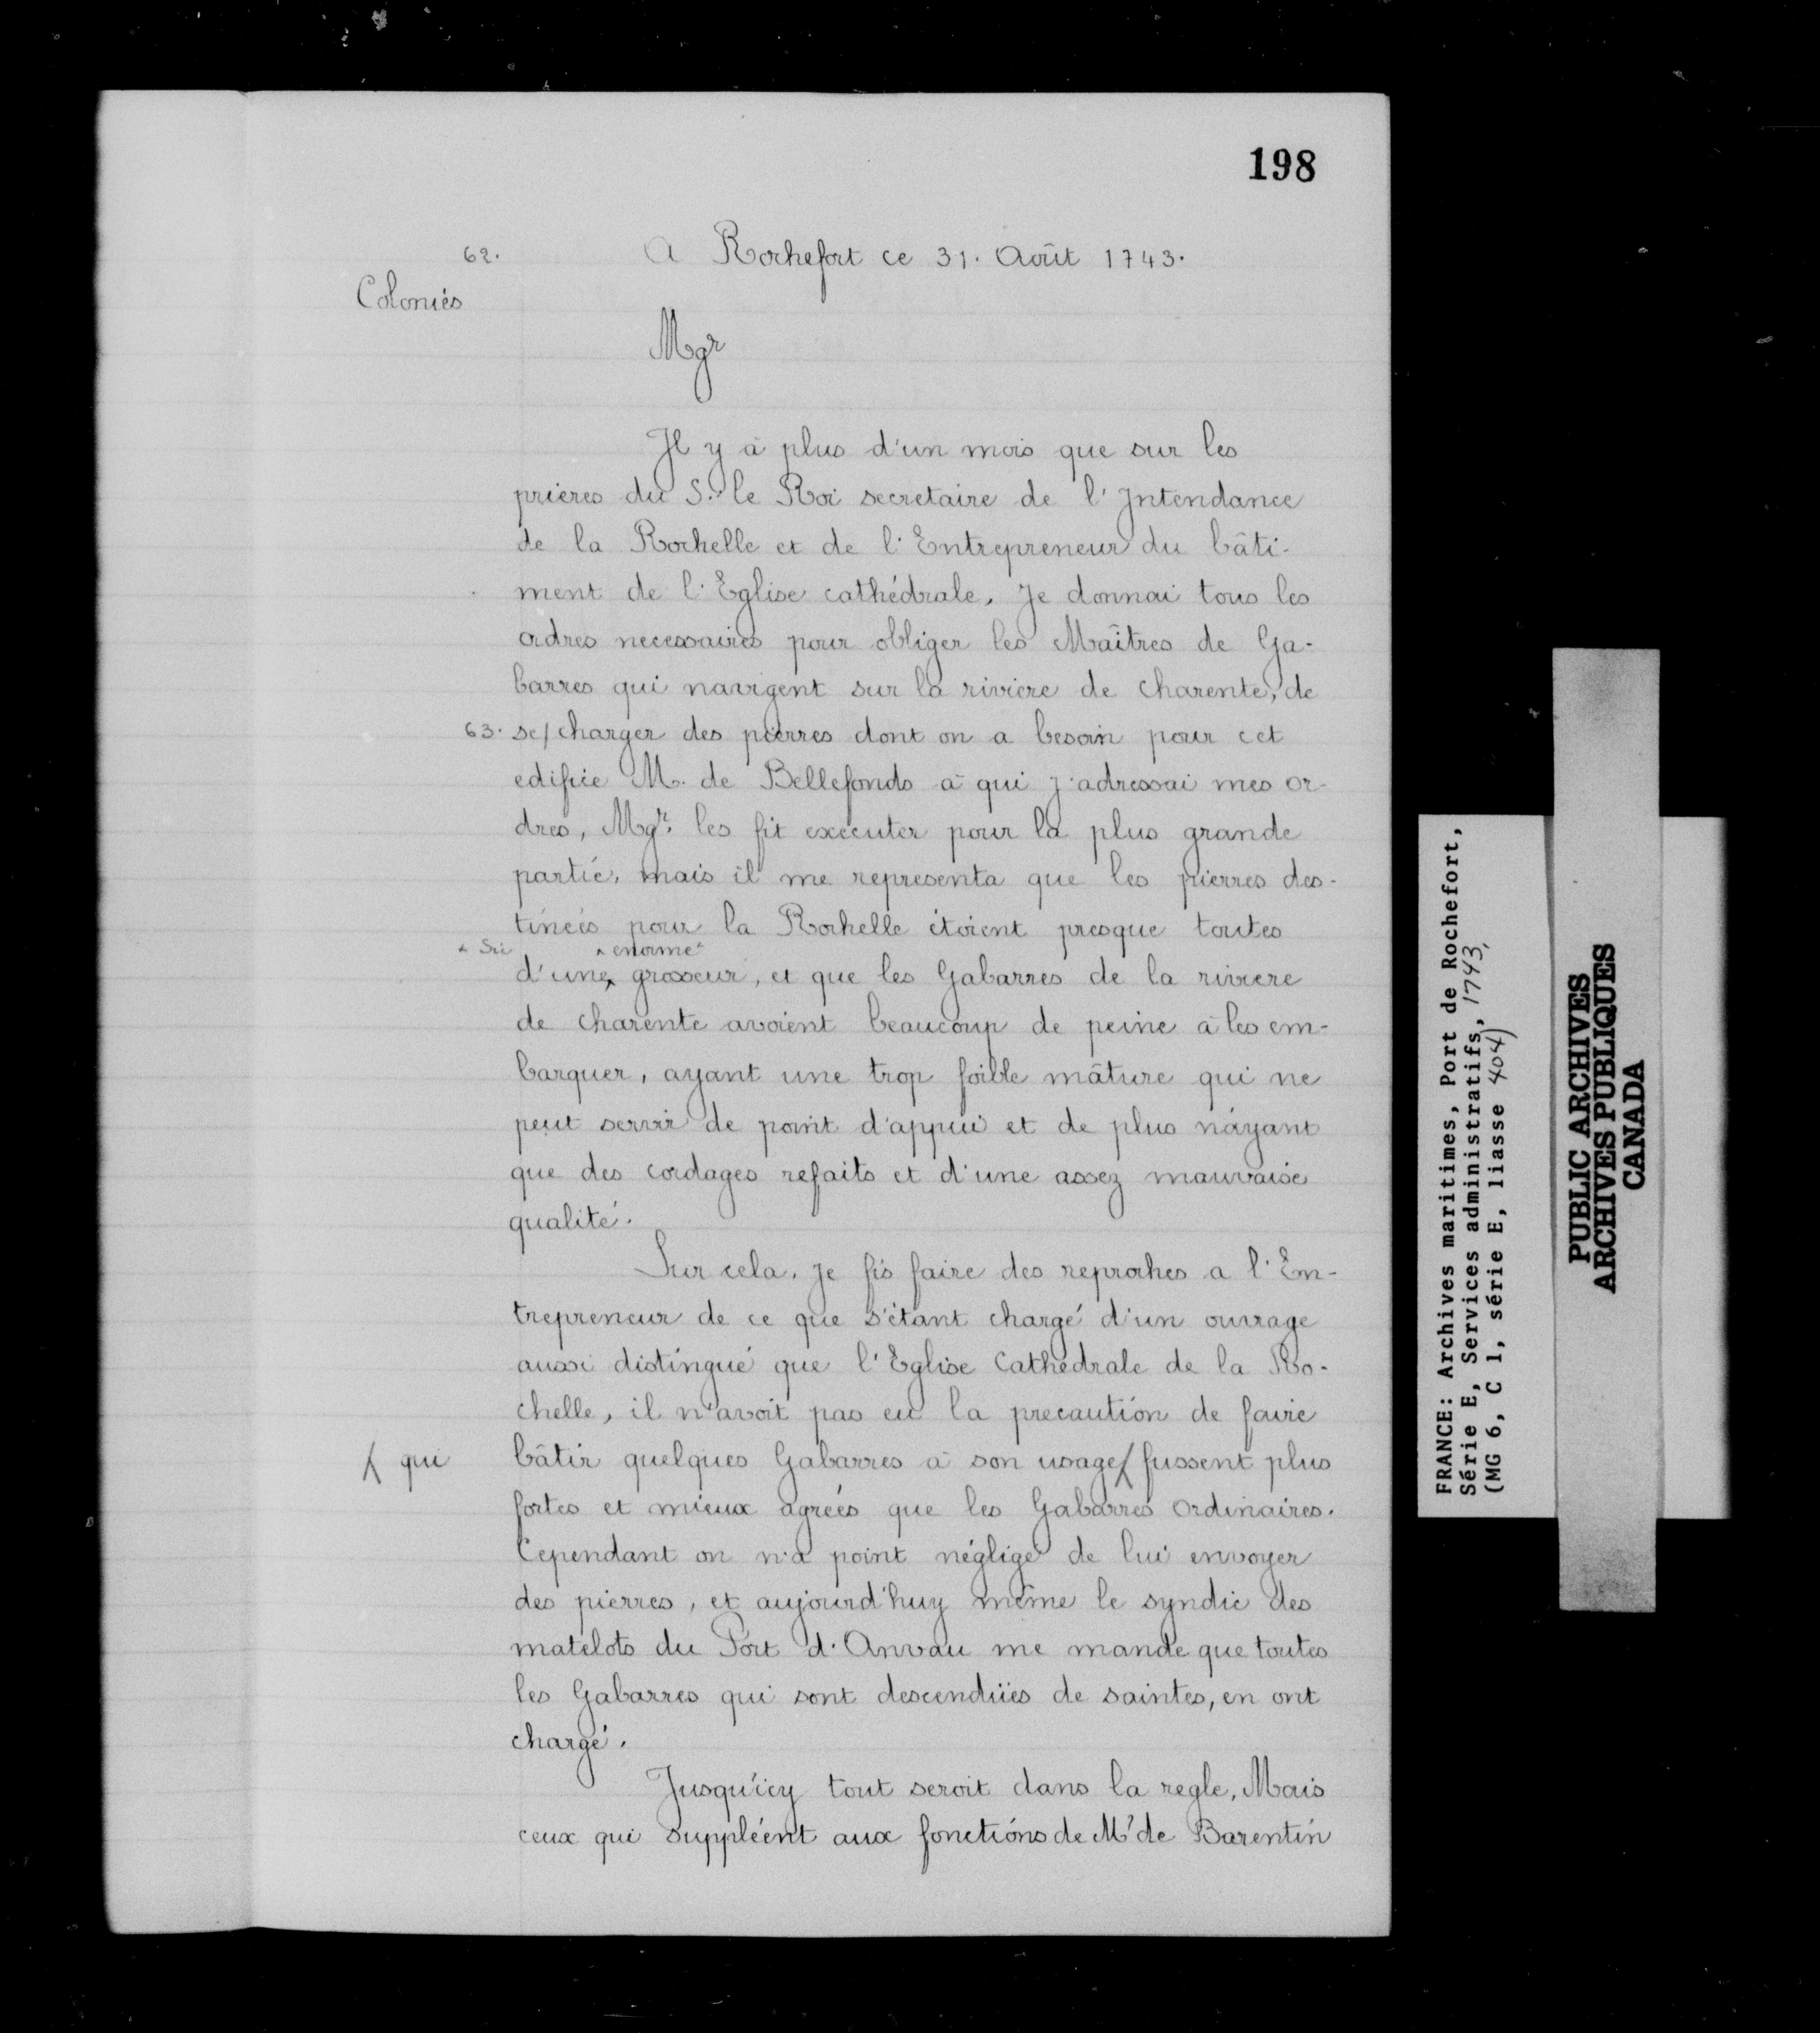 198
62. A Rochefort ce 31. Août 1743.
Colonies
Mgr
Il y a plus d'un mois que sur les
prieres du S.r le Roi secretaire de l'Intendance
de la Rochelle et de l'Entrepreneur du bâti-
ment de l'Eglise cathédrale, Je donnai tous les
ordres necessaires pour obliger les Maîtres de Ga-
barres qui navigent sur la riviere de Charente, de
63. se/charger des pierres dont on a besoin pour cet
edifice M. de Bellefonds à qui j'adressai mes or-
dres, Mgr. les fit executer pour la plus grande
partie, mais il me representa que les pierres des-
tinées pour la Rochelle étoient presque toutes
* Sic * enorme *
d'une grosseur, et que les Gabarres de la riviere
de Charente avoient beaucoup de peine à les em-
barquer, ayant une trop foible mâture qui ne
peut servir de point d'appui et de plus n'ayant
que des cordages refaits et d'une assez mauvaise
qualité.
Sur cela, je fis faire des reproches a l'En-
trepreneur de ce que s'étant chargé d'un ouvrage
aussi distingué que l'Eglise Cathédrale de la Ro-
chelle, il n'avoit pas eu la precaution de faire
⁁ qui bâtir quelques Gabarres à son usage ⁁ fussent plus
fortes et mieux agrées que les Gabarres Ordinaires.
Cependant on n'a point négligé de lui envoyer
des pierres, et aujourd'huy même le syndic des
matelots du Port d'Anvau me mande que toutes
les Gabarres qui sont descendües de saintes, en ont
chargé.
Jusqu'icy tout seroit dans la regle, Mais
ceux qui suppléent aux fonctions de Mr de Barentin
FRANCE: Archives maritimes, Port de Rochefort,
Série E, Services administratifs, 1743,
(MG 6, C 1, série E, liasse 404)
PUBLIC ARCHIVES
ARCHIVES PUBLIQUES
CANADA